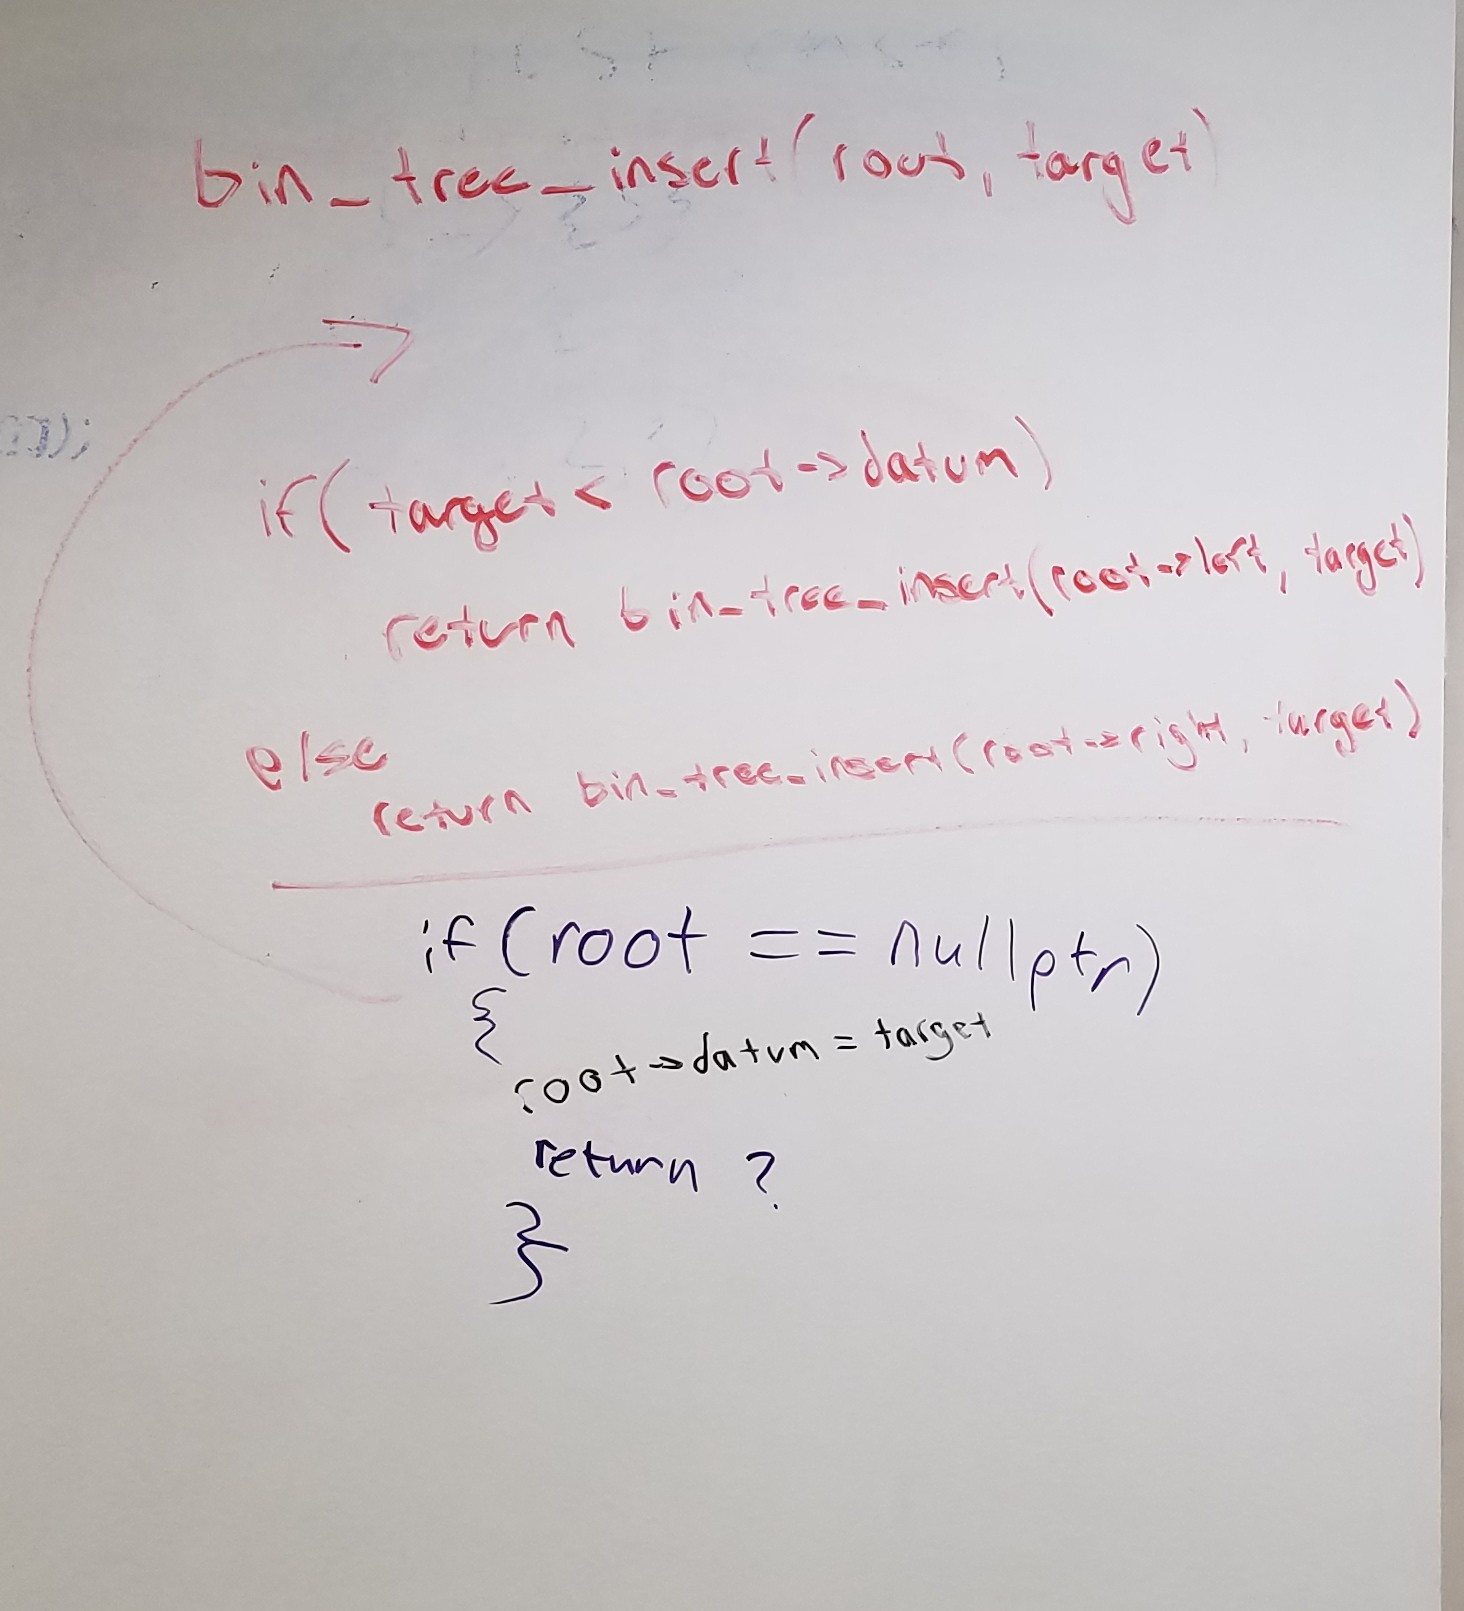 bin_tree_insert(root, target)
if(target < root->datum)
return bin_tree_insert(root->left, target)
else
return bin_tree_insert(root->right, target)
if(root == nullptr)
{
root->datum = target
return ?
}